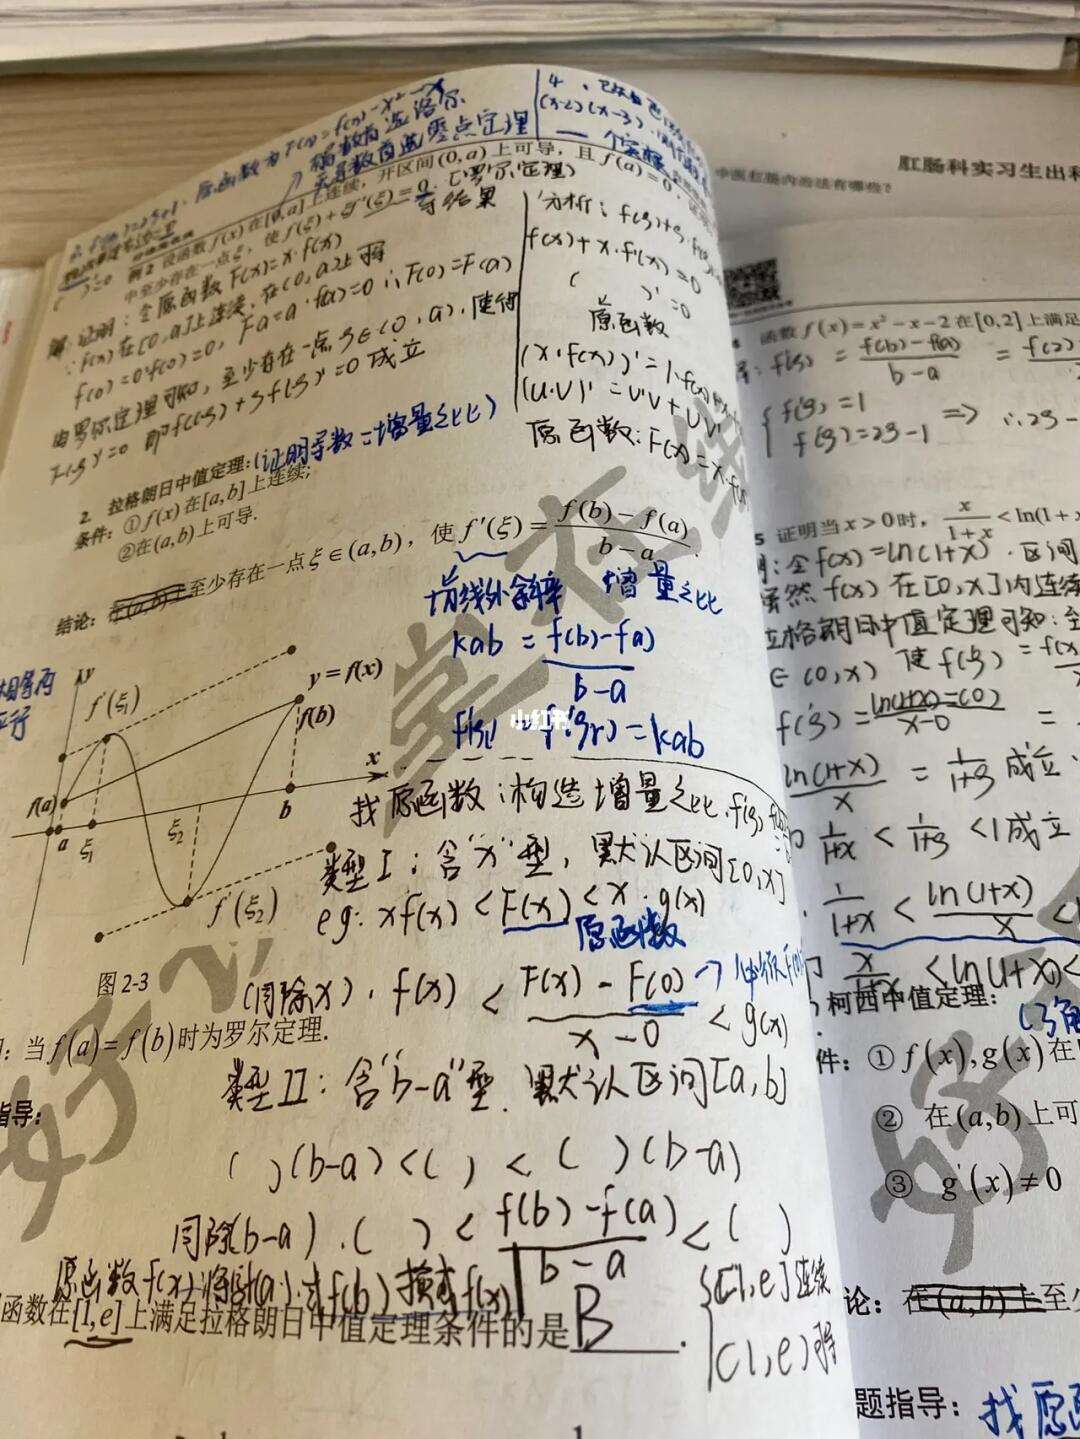 原函数为 F(x)=f(x)-x²-x
有导数首选洛尔
无导数首选零点定理
4、
(x-2)(x-3)
例2 设函数 f(x) 在[0,a]上连续，开区间(0,a)上可导，且 f(a)=0，
中至少存在一点ξ，使 f(ξ)+ξf'(ξ)=0.
(罗尔定理)
导结果
证明：令原函数 F(x)=x·f(x)
∵F(x)在[0,a]上连续，在(0,a)上可导
f(0)=0·f(0)=0, Fa=a·f(a)=0 ∴F(0)=F(a)
由罗尔定理可知，至少存在一点ξ∈(0,a)，使得
F(ξ)'=0 即f(ξ)+ξf(ξ)'=0 成立
分析：f(ξ)+ξ·f
f(x)+x·f'(x)=0
( )'=0
原函数
(x·f(x))'=1·f(x)
(u·v)'=u'v+uv'
原函数：F(x)=x·f(x)
2. 拉格朗日中值定理：(证明导数=增量之比)
条件：①f(x)在[a,b]上连续;
②在(a,b)上可导.
结论：在(a,b)上至少存在一点ξ∈(a,b)，使f'(ξ)=f(b)-f(a)/b-a.
切线外斜率 增量之比
kab=f(b)-f(a)/b-a
=f'(ξ₂)=kab
相等两
平行
y
f'(ξ₁)
y=f(x)
f(b)
x
f(a)
a
ξ₁
ξ₂
b
f'(ξ₂)
图 2-3
小红书
找原函数：构造增量之比，f'(ξ)
类型Ⅰ：含"x"型，默认区间[0,x]
eg: xf(x)<F(x)<x·g(x)
原函数
(同除x)，f(x)<F(x)-F(0)/x-0<g(x)
当f(a)=f(b)时为罗尔定理.
指导：
类型Ⅱ：含"b-a"型，默认区间[a,b]
( )(b-a)<( )<( )(b-a)
同除(b-a)，( )<f(b)-f(a)/b-a<( )
原函数f(x)：将f(a)或f(b)换成f(x)
函数在[1,e]上满足拉格朗日中值定理条件的是 B .
{[1,e]连续
(1,e)可导
肛肠科实习生出科
中医肛肠内治法有哪些？
函数 f(x)=x²-x-2在[0,2]上满足
f'(ξ)=f(b)-f(a)/b-a=f(2)
{f'(ξ)=1
f'(ξ)=2ξ-1 => ∴2ξ-
5 证明当x>0时，x/1+x<ln(1+
令f(x)=ln(1+x)，区间
显然 f(x) 在[0,x]内连续
拉格朗日中值定理可知：至
∈(0,x) 使f'(ξ)=
f'(ξ)=ln(1+x)-(0)/x-0=
ln(1+x)/x=1/1+ξ 成立
1/1+x<1/1+ξ<1成立
1/1+x<ln(1+x)/x<
x/1+x<ln(1+x)<
柯西中值定理：
件：①f(x),g(x)在
②在(a,b)上可
③g'(x)≠0
论：在(a,b)上至少
题指导：找原函